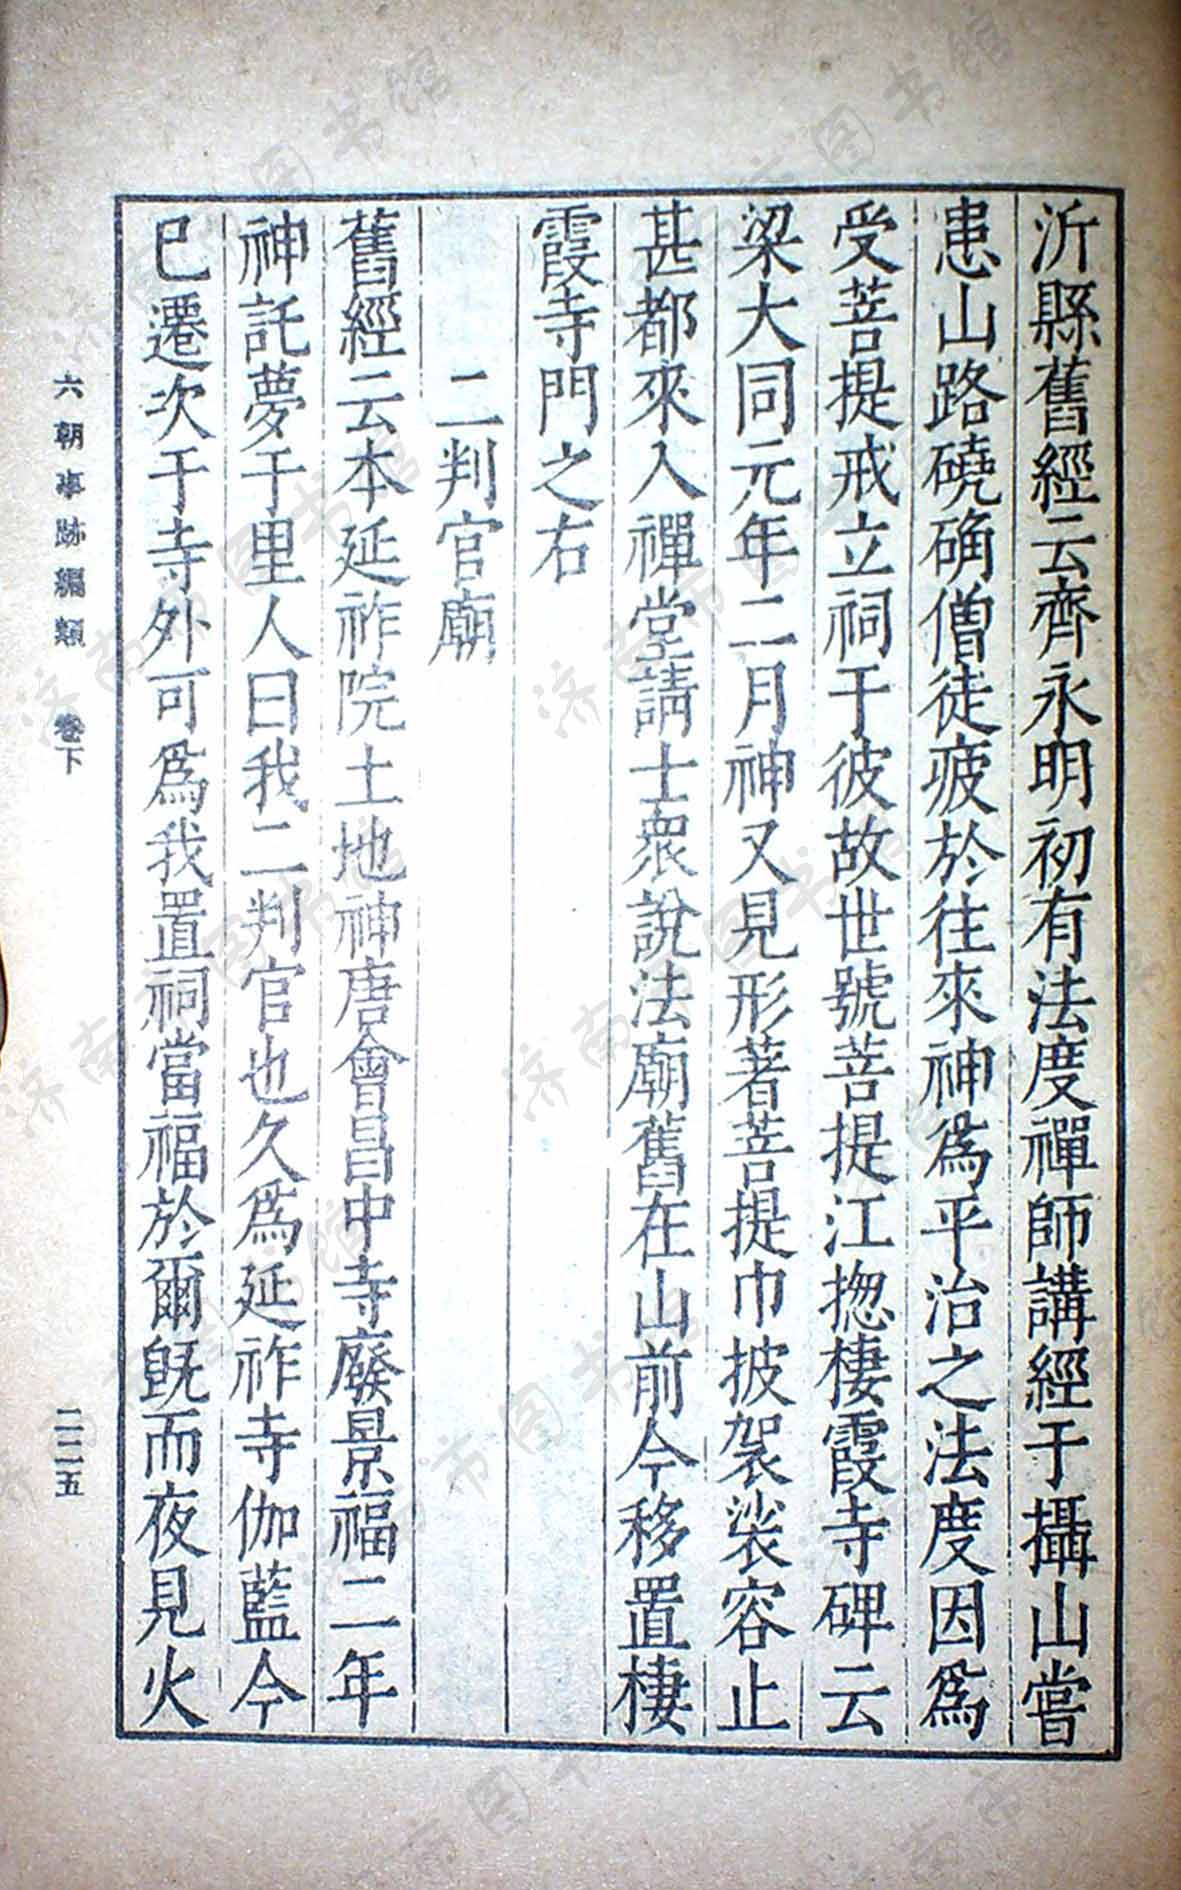 沂縣舊經云齊永明初有法度禪師講經于攝山嘗
患山路磽确僧徒疲於往來神爲平治之法度因爲
受菩提戒立祠于彼故世號菩提江揔棲霞寺碑云
梁大同元年二月神又見形著菩提巾披袈裟容止
甚都來入禪堂請士衆說法廟舊在山前今移置棲
霞寺門之右
二判官廟
舊經云本延祚院土地神唐會昌中寺廢景福二年
神託夢于里人曰我二判官也久爲延祚寺伽藍今
已遷次于寺外可爲我置祠當福於爾旣而夜見火
六朝事跡編類 卷下
一二五
济南市图书馆